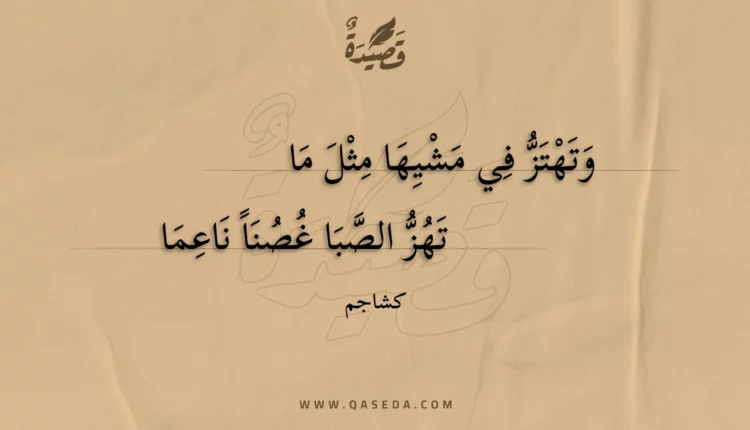 قَصِيْدَةٌ
وَتَهْتَزُّ فِي مَشْيِهَا مِثْلَ مَا
تَهُزُّ الصَّبَا غُصُنَاً نَاعِمَا
كشاجم
WWW.QASEDA.COM